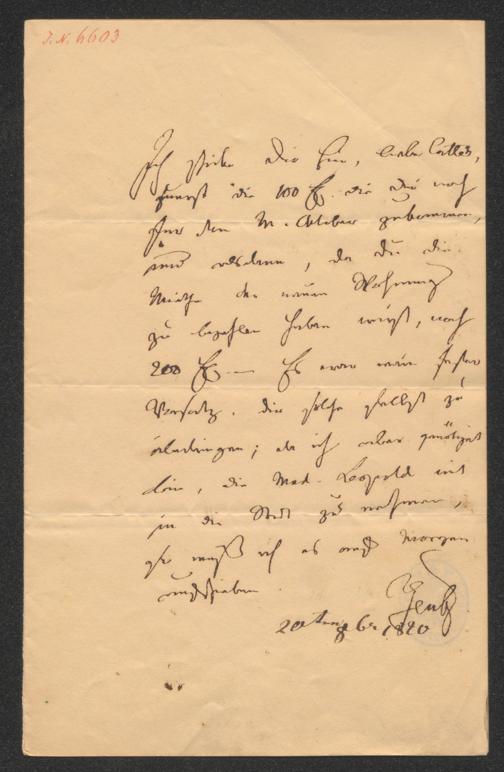 J. N. 6603
Ich schicke Dir hier, lieber
zuerst die 100 f. die Dir noch
für den M. Oktober zukommen,
und alsdann, da Du die
Miethe der neuen Wohnung
zu bezahlen haben wirst, noch
200 f. — Es war mein fester
Vorsatz, Dir selbst zu
; da ich aber genöthigt
bin, die Mad. Leopold mit
in die Stadt zu nehmen,
so muß ich es auf Morgen
aufschieben
Gentz
1820